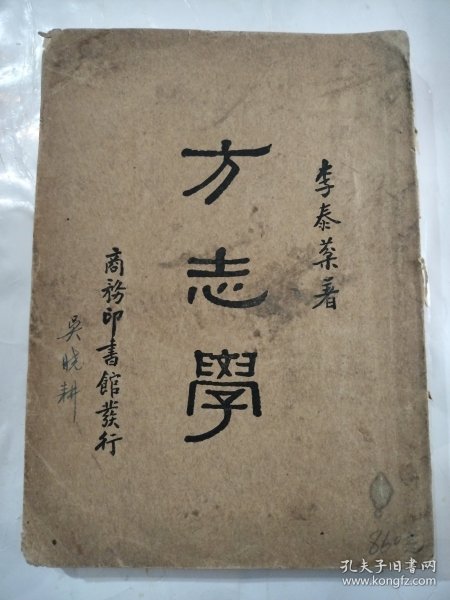 李泰棻著
方志學
商務印書館發行
吳曉耕
孔夫子旧书网
www.kongfz.com